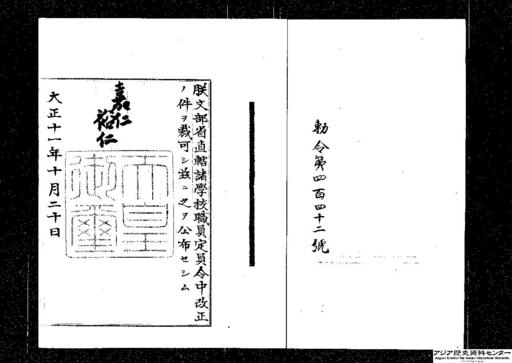 勅令第四百四十二號
朕文部省直轄諸學校職員定員令中改正
ノ件ヲ裁可シ茲ニ之ヲ公布セシム
嘉仁
裕仁
天皇御璽
大正十一年十月二十日
アジア歴史資料センター
Japan Center for Asian Historical Records